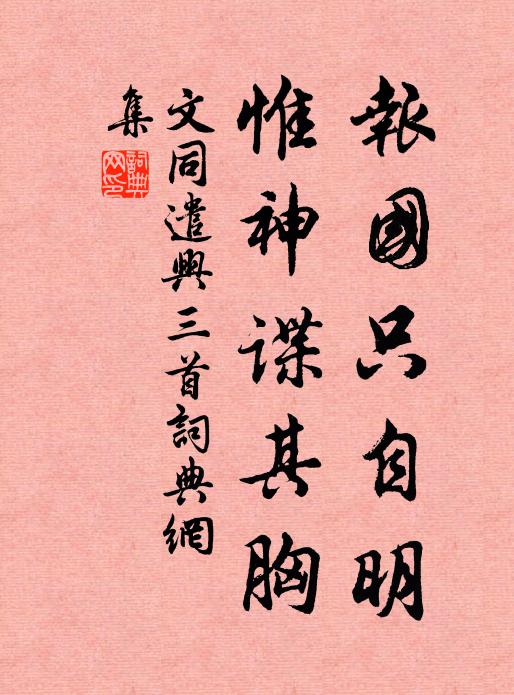 報國只自明
惟神諜其胸
文同遣興三首詞典網
集
詞典
网印